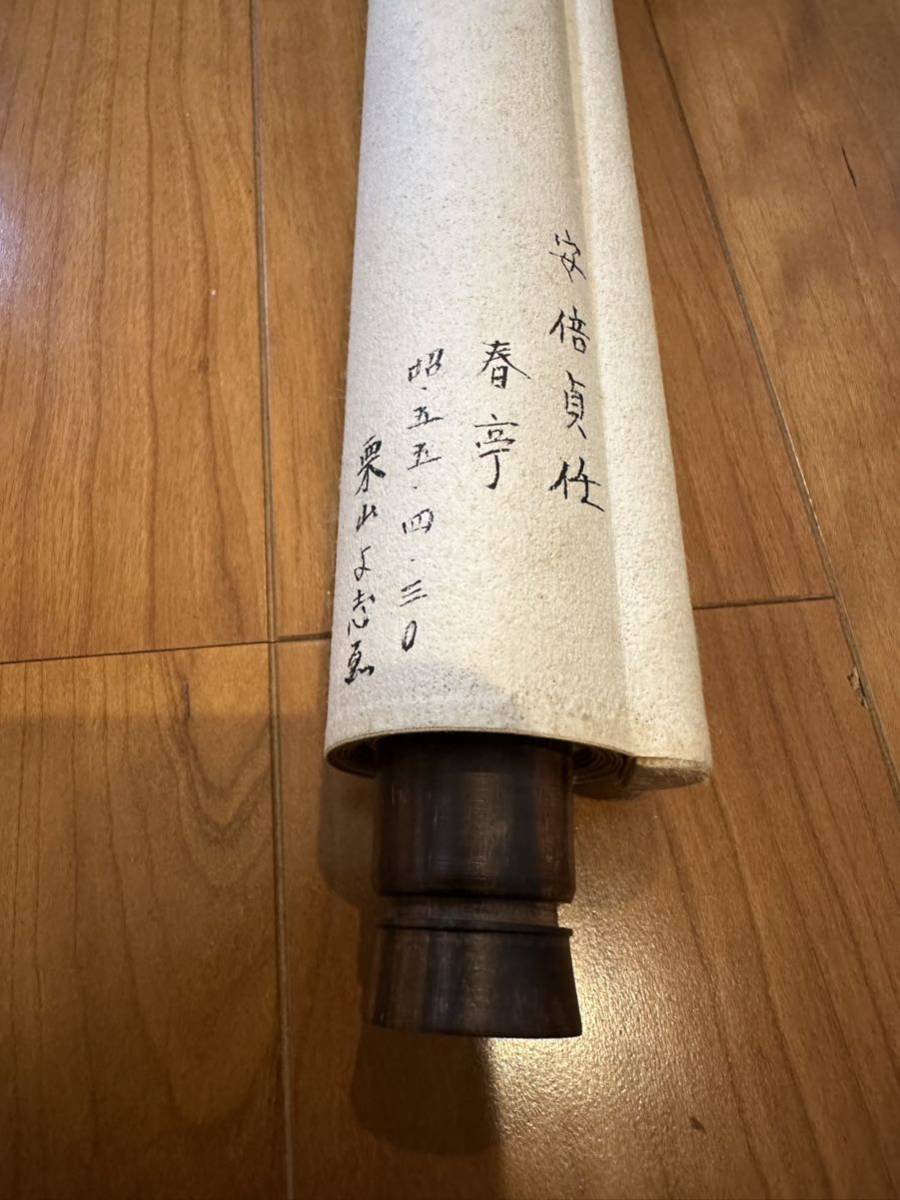 安倍貞任
春亭
昭・五五・四・三〇
栗山よ志恵